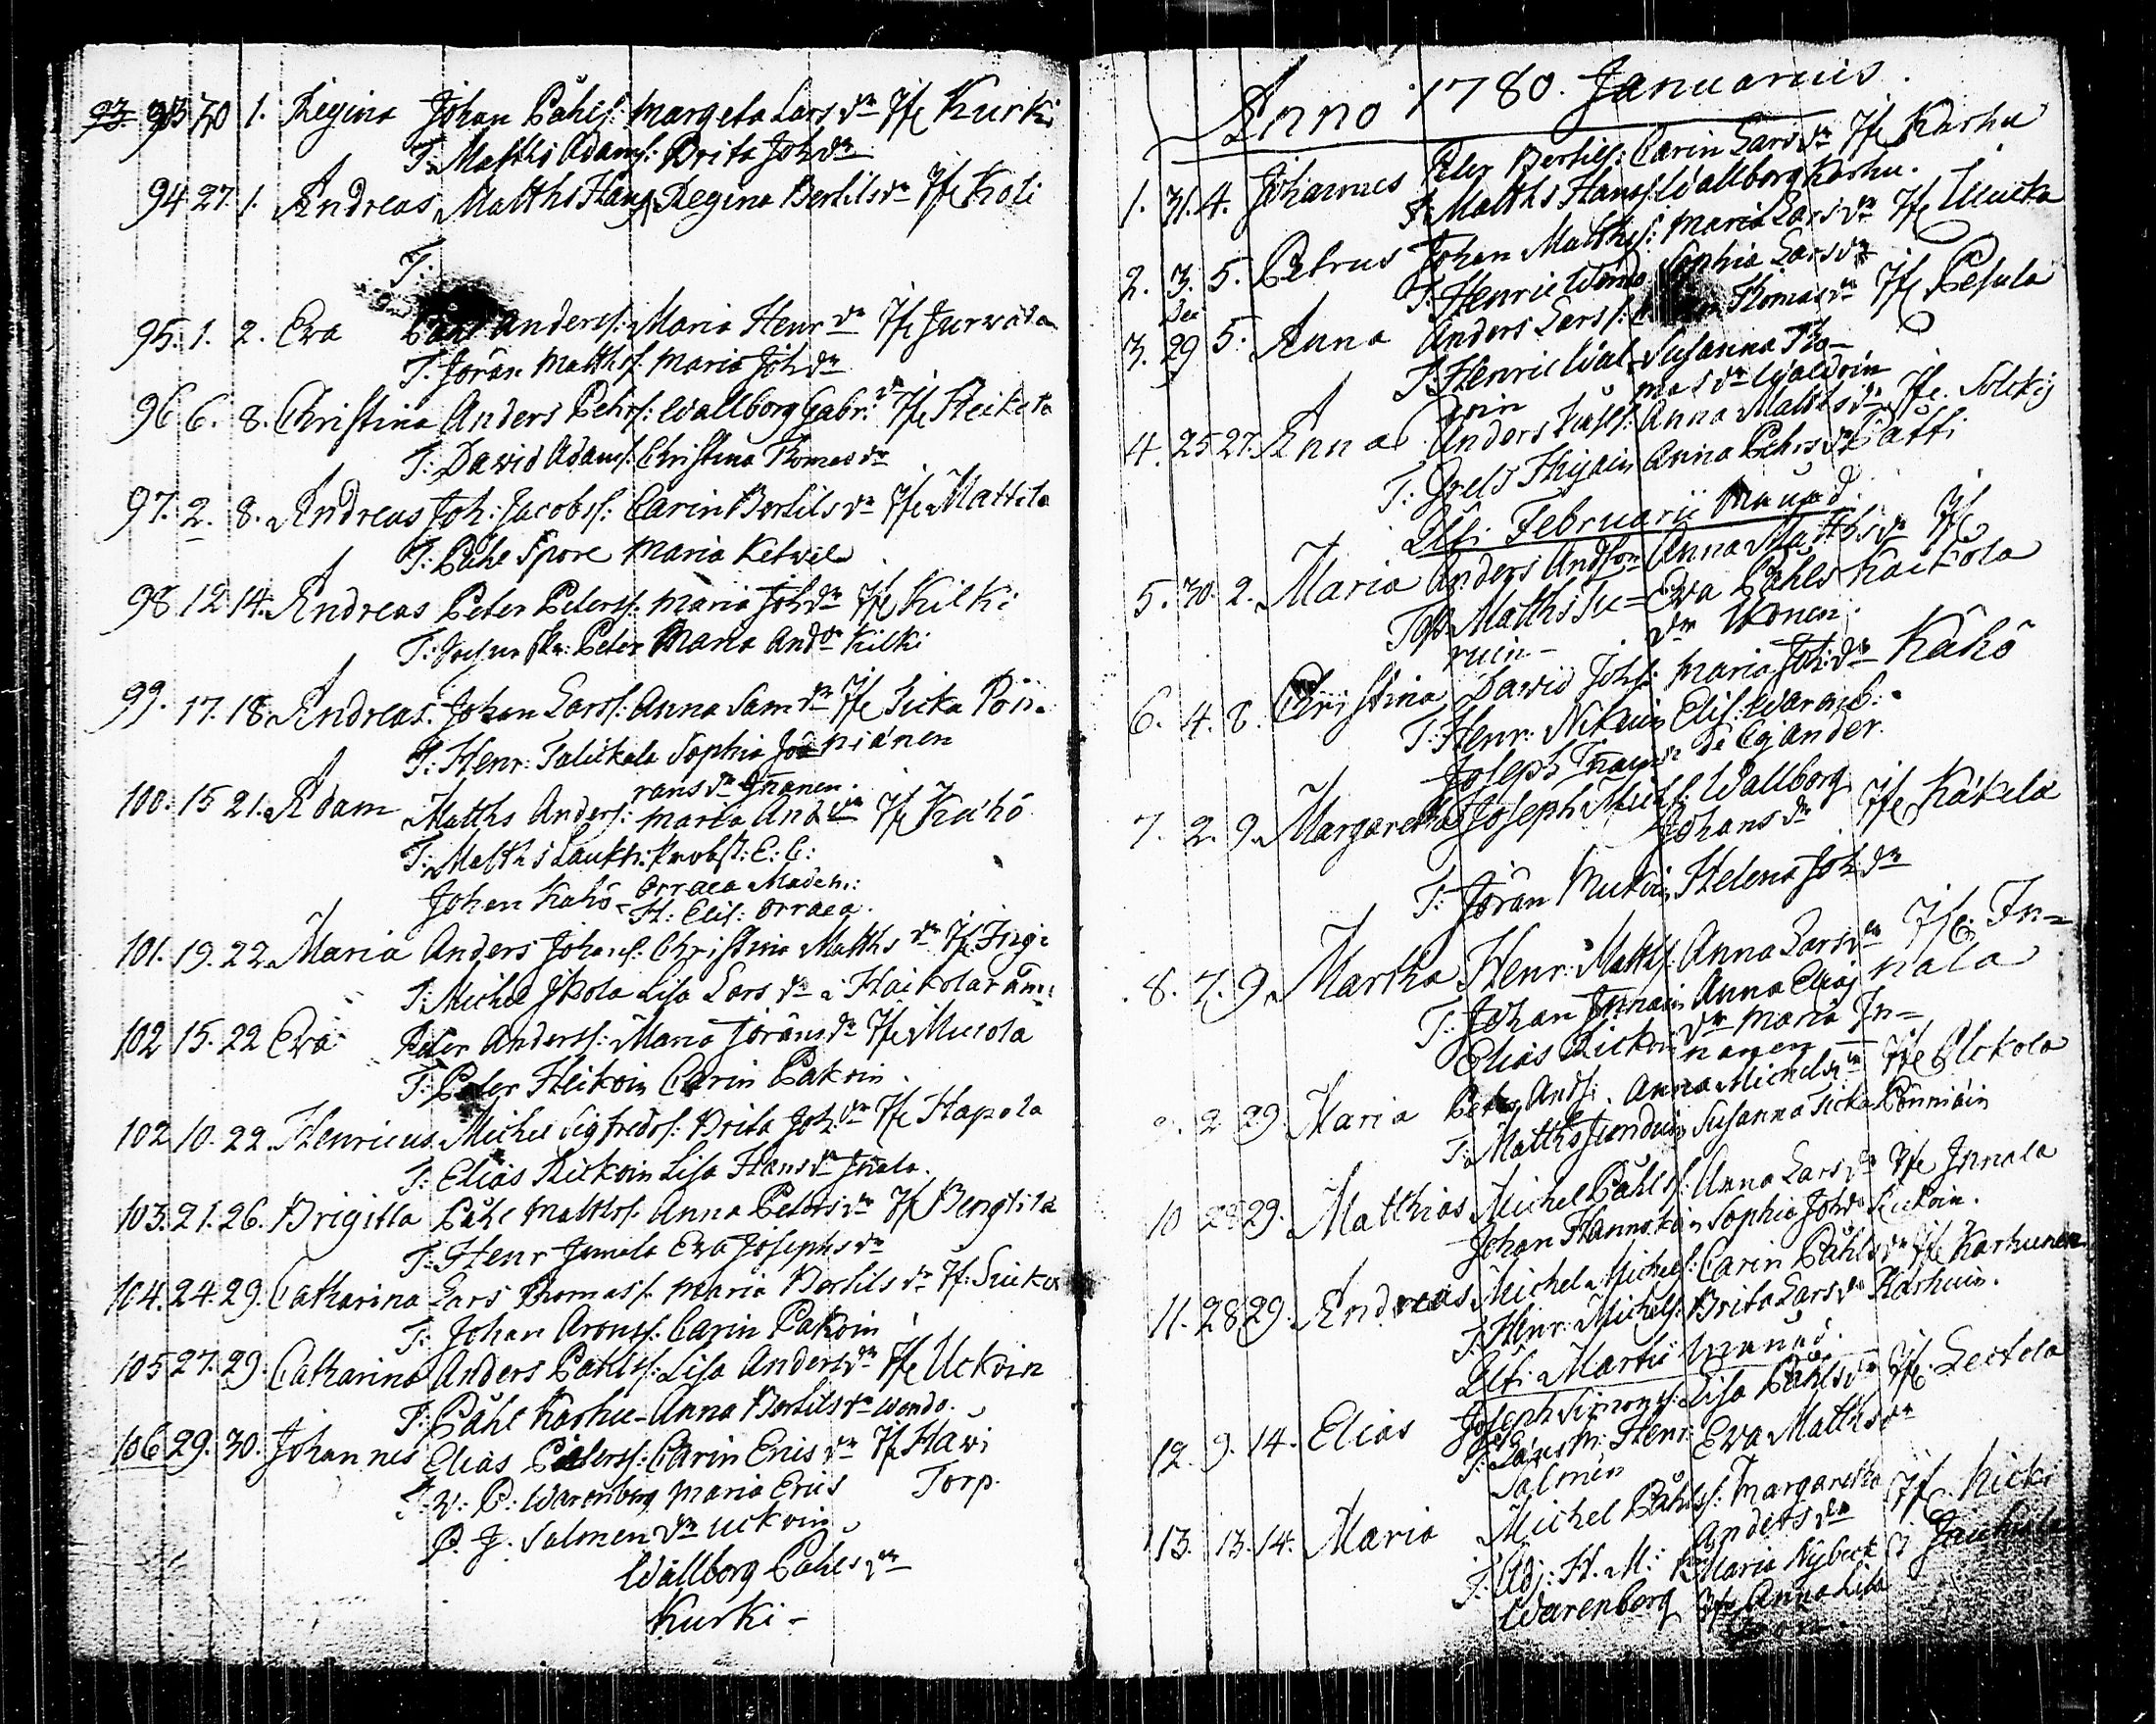 93. 93 30 1. Regina Johan Påhlsſ: Margeta Lars dr ifr Kurki
T. Matths Adamſ: Brita Joh dr
94 27. 1. Andreas Matths Hansſ Regina Bertils dr ifr Koli
T:
95. 1. 2. Eva Anderſſ: Maria Henr dr ifr Jurvala
T. Jöran Matthsſ. Maria Joh dr
96 6. 8. Chriſtina Anders Pehrſ: Wallborg Gabr: dr ifr Heikela
T: David Adamſ. Chriſtina Thomas dr
97. 2. 8. Andreas Joh: Jacobsſ: Carin Bertils dr ifr Mattila
T: Påhl Spore Maria Ketvel
98 12 14. Andreas Peter Petersſ. Maria Joh dr ifr Kilki
T: Peter Maria And dr Kilki
99. 17. 18. Andreas. Johan Larsſ: Anna Sam dr ifr Sicka Pön-
T. Henr: Talickala Sophia Jö- niänen
rans dr Inanen.
100. 15 21. Adam Matths Andersſ: Maria And dr ifr Kähö
T: Matths Laukk: Probſt: E: C:
Johan Kähö - Orraea Madem:
H: Eliſ: Orraea.
101. 19. 22. Maria Anders Johansſ: Chriſtina Matths dr ifr Ingi
T: Michel Ikola Liſa Lars dr Haikola
102 15. 22 Eva Peter Anderſſ: Maria Jörans dr ifr Mucola
T: Peter Heikoin Carin Pakoin
102 10. 22. Henricus. Michel Sigfredsſ: Brita Joh dr ifr Hapola
T: Elias Rickoin Liſa Hans dr Inala.
103. 21. 26. Brigitta Påhl Matthsſ. Anna Peters dr ifr Bengtilä
T: Henr Jamala Eva Josephs dr
104. 24. 29. Catharina Lars Thomasſ. Maria Bertils dr if: Sicka
T: Johan Aronsſ: Carin Pakoin
105 27. 29. Catharina Anders Påhlsſ: Liſa Anders dr ifr Uckoin
T: Påhl Karhu - Anna Bertils dr Wondo.
106 29. 30. Johannes Elias Petersſ: Carin Erics dr if Hawi
T: V: P: Warenberg Maria Erics Torp.
P. J. Salonen dr Uckoin
Wallborg Påhls dr
Kurki -
Anno 1780. Januarius.
1. 31. 4. Johannes Peter Bertilsſ: Carin Lars dr ifr Karhu
T. Matths Hansſ: Wallborg Karhu.
2. 3. 5. Petrus Johan Matthsſ: Maria Lars dr ifr Mucka
T: Henric Wond Sophia Lars dr
Dec
3. 29 5. Anna Anders Larsſ: Thomas dr ifr Pesula
T: Henric Wal- Susanna Tho-
doin mas dr Waldoin
4. 25 27. Anna Anders Anna Matths dr ifr. Solckij
T: Grels Thijain Anna Pehrs dr Pätti
Uti Februarii Månad
5. 30. 2. Maria Anders Andſon Anna Matths dr ifr
Matths Tu- Eva Påhls Kaikola
ruin - dr Ukonen
6. 4. 8. Chriſtina David Johſ: Maria Joh: dr Kähö
T: Henr: Nikuin Eliſ: Warenb:
Joseph De Cejander.
7. 2. 9. Margaretha Joseph Michſ: Wallborg
Johans dr ifr Käkelä
T: Jöran Mukoin Helena Joh dr
8. 7. 9. Martha Henr: Matthsſ. Anna Lars dr ifr In-
T: Johan Innain Anna Elias nala
Elias Rickoin dr Maria In-
nanen
9. 2 29. Maria Peter Andſ: Anna Michels dr ifr Ulckola
T: Matths Junduin Susanna Sicka Pönniäin
10 28 29. Matthias Michel Påhlsſ: Anna Lars dr ifr Innala
Johan Hannokain Sophia Joh dr Rickoin.
11. 28 29. Andreas Michel Michelsſ: Carin Påhls dr ifr Karhunen
T: Henr: Michelsſ: Brita Lars dr Karhuin.
Uti Martii månad.
12. 9. 14. Elias Joseph Simonsſ: Liſa Påhls dr ifr. Leckela
T: Länsm: Henr: Eva Matths dr
Salmén
13. 13. 14. Maria Michel Påhlsſ: Margaretha ifr. Kicki
Anders dr
T: Adj: H. M: Maria Nybeck
Warenberg Anna Liſa